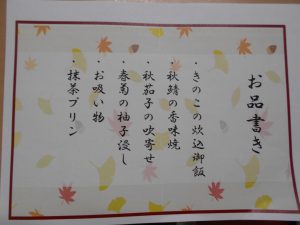 お品書き
・きのこの炊込御飯
・秋鯖の香味焼
・秋茄子の吹寄せ
・春菊の柚子浸し
・お吸い物
・抹茶プリン